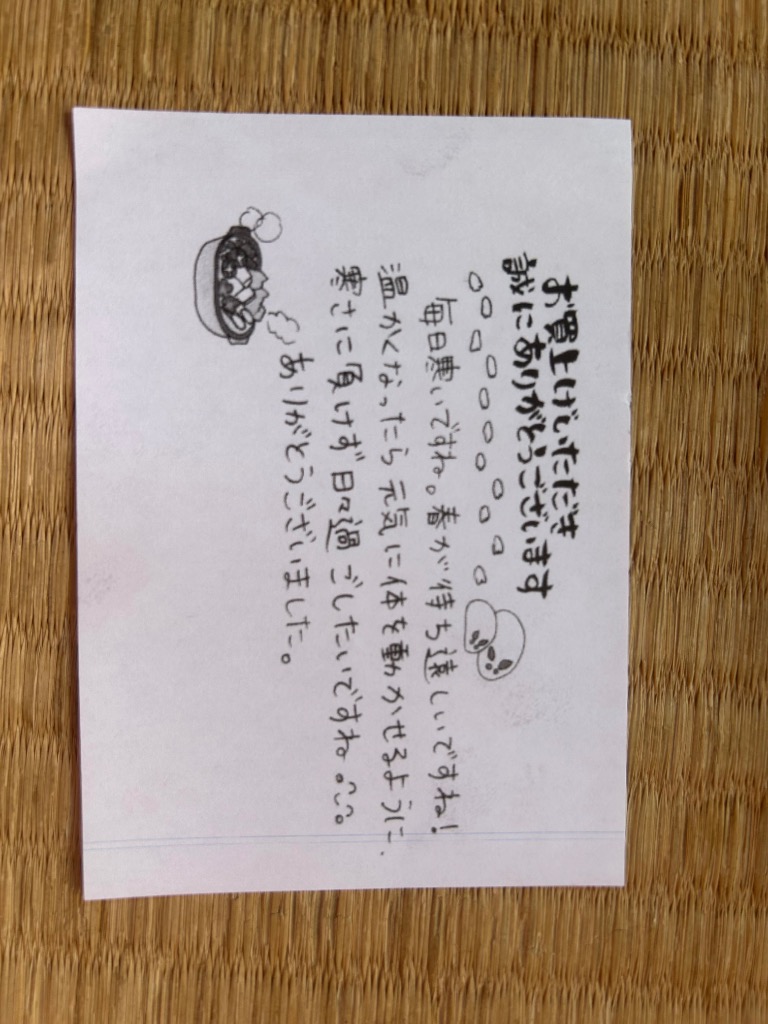 お買上げいただき
誠にありがとうございます
毎日寒いですね。春が待ち遠しいですね!
温かくなったら元気に体を動かせるように、
寒さに負けず日々過ごしたいですね^^。
ありがとうございました。